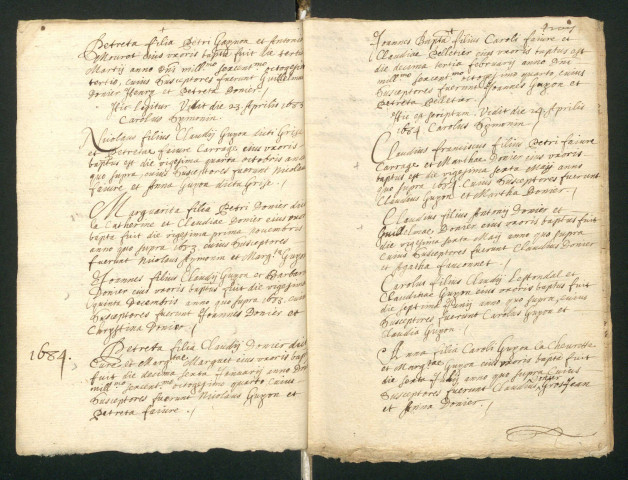 Petreta filia Petri Guyon et Antonia
Mourot eius uxoris bapta fuit die tertia
Martij anno Dni mill.mo sexcent.mo octogesimo
tertio, cuius Susceptores fuerunt Guillelmus
Donier Henry et Petreta Donier./
Hic legitur Vidit die 23 Aprilis 1683
Carolus Symonin
Nicolaus filius Claudij Guyon dicti Grise
et Petretae faivre Carrage eius uxoris
baptus est die vigesima quarta octobris anno
quo supra, cuius Susceptores fuerunt Nicolaus
faivre et Anna Guyon dicta Grise.
Margarita filia Petri Donier de
la Catherine et Claudiae Donier eius uxoris
bapta fuit die vigesima prima Novembris
anno quo supra 1683 cuius Susceptores
fuerunt Nicolaus Aymonin et Marg.ta Guyon
Joannes filius Claudij Guyon et Barbarae
Donier eius uxoris baptus fuit die vigesima
quinta Decembris anno quo supra 1683. cuius
Susceptores fuerunt Joannes Donier et
Chrystina Donier./
1684.
Petreta filia Claudij Donier dit
et Marg.tae Marguet eius uxoris bapta
fuit die decima sexta Januarij anno Dni
mill.mo sexcent.mo octogesimo quarto Cuius
Susceptores fuerunt Nicolaus Guyon et
Petreta faivre./
Joannes Bapta filius Caroli faivre et
Claudinae Pelletier eius uxoris baptus est
die decima tertia februarij anno Dni
mill.mo sexcent.mo octogesimo quarto, cuius
Susceptores fuerunt Joannes Guyon et
Petreta Pelletier./
Hic est scriptum Vidit die 24 Aprilis
1684 Carolus Symonin./
Claudius franciscus filius Petri faivre
Carrage et Marthae Donier eius uxoris
baptus est die vigesima sexta Maij anno
quo supra 1684. Cuius Susceptores fuerunt
Claudius Guyon et Martha Donier./
Claudius filius Antonij Donier et
Guillelmae Donier eius uxoris baptus fuit
die vigesima sexta Maij anno quo supra
cuius Susceptores fuerunt Claudius Donier
et Agatha
Carolus filius Claudij et
Claudinae Guyon eius uxoris baptus fuit
die septima Junij anno quo supra, cuius
Susceptores fuerunt Carolus Guyon et
Claudia Guyon./
Anna filia Caroli Guyon la Chourotte
et Marg.tae Guyon eius uxoris bapta fuit
die sexta Julij anno quo supra Cuius
Susceptores fuerunt Claudius Donier GrosJean
et Anna Donier./